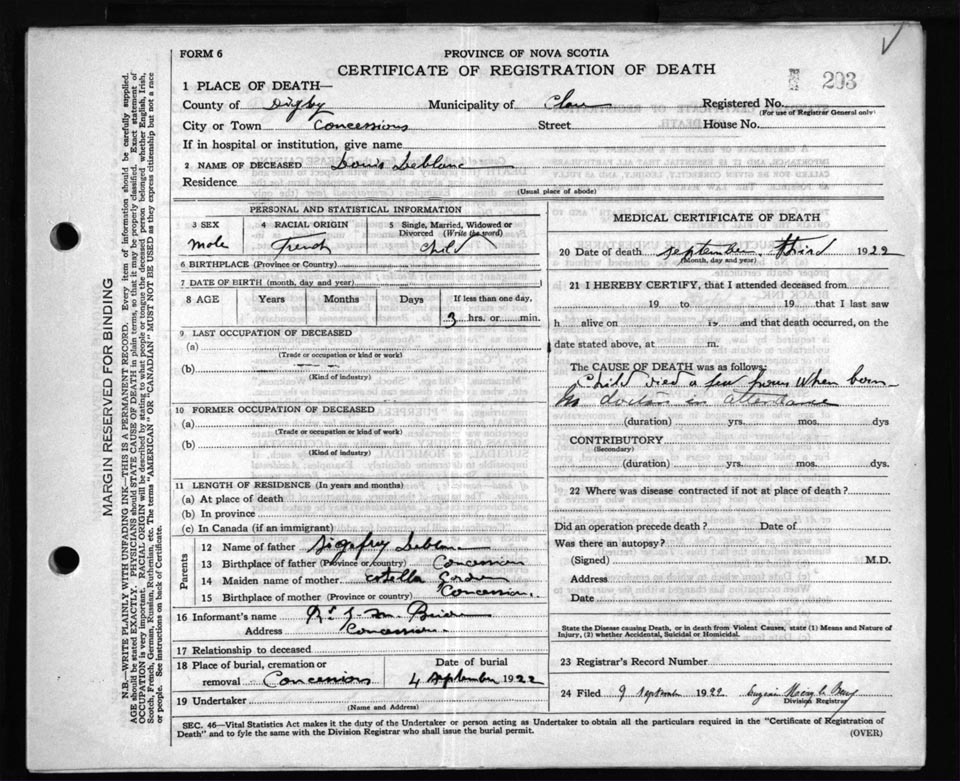 FORM 6
PROVINCE OF NOVA SCOTIA
CERTIFICATE OF REGISTRATION OF DEATH
203
1 PLACE OF DEATH—
County of Digby Municipality of Clare Registered No.
(For use of Registrar General only)
City or Town Concessions Street House No.
If in hospital or institution, give name
2 NAME OF DECEASED Louis Leblanc
Residence
(Usual place of abode)
PERSONAL AND STATISTICAL INFORMATION
3 SEX 4 RACIAL ORIGIN 5 Single, Married, Widowed or Divorced (Write the word)
male French Child
6 BIRTHPLACE (Province or Country)
7 DATE OF BIRTH (month, day and year)
8 AGE Years Months Days If less than one day,
3 hrs. or min.
9 LAST OCCUPATION OF DECEASED
(a)
(Trade or occupation or kind or work)
(b)
(Kind of industry)
10 FORMER OCCUPATION OF DECEASED
(a)
(Trade or occupation or kind of work)
(b)
(Kind of industry)
11 LENGTH OF RESIDENCE (In years and months)
(a) At place of death
(b) In province
(c) In Canada (if an immigrant)
Parents
12 Name of father Leblanc
13 Birthplace of father (Province or country) Concession
14 Maiden name of mother Estella
15 Birthplace of mother (Province or country) Concession.
16 Informant's name
Address Concession
17 Relationship to deceased
18 Place of burial, cremation or removal Concessions
Date of burial
4 September 1922
19 Undertaker
(Name and Address)
MEDICAL CERTIFICATE OF DEATH
20 Date of death September third 1922
(Month, day and year)
21 I HEREBY CERTIFY, that I attended deceased from
19 to 19 that I last saw
h alive on 19 and that death occurred, on the
date stated above, at m.
The CAUSE OF DEATH was as follows:
Child died a few hours when born
No doctor in attendance
(duration) yrs. mos. dys
CONTRIBUTORY
(Secondary)
(duration) yrs. mos. dys.
22 Where was disease contracted if not at place of death?
Did an operation precede death? Date of
Was there an autopsy?
(Signed) M.D.
Address
Date
State the Disease causing Death, or in death from Violent Causes, state (1) Means and Nature of
Injury, (2) whether Accidental, Suicidal or Homicidal.
23 Registrar's Record Number
24 Filed 9 September 1922
Division Registrar
SEC. 46—Vital Statistics Act makes it the duty of the Undertaker or person acting as Undertaker to obtain all the particulars required in the "Certificate of Registration of
Death" and to fyle the same with the Division Registrar who shall issue the burial permit.
(OVER)
MARGIN RESERVED FOR BINDING
N.B.—WRITE PLAINLY WITH UNFADING INK—THIS IS A PERMANENT RECORD. Every item of information should be carefully supplied.
AGE should be stated EXACTLY. PHYSICIANS should STATE CAUSE OF DEATH in plain terms, so that it may be properly classified. Exact statement of
OCCUPATION is very important. RACIAL ORIGIN will be described by stating to what people or tongue the deceased person belonged whether English, Irish,
Scotch, French, German, Russian, Ruthenian, etc. The terms "AMERICAN" or "CANADIAN" MUST NOT BE USED as they express citizenship but not a race
or people. See instructions on back of Certificate.